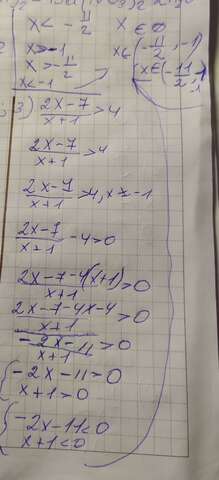 x < - 11/2
x > -1
x > - 11/2
x < -1
x ∈ ∅
x ∈ (- 11/2, -1)
x ∈ (- 11/2, -1)
3) (2x-7)/(x+1) > 4
(2x-7)/(x+1) > 4
(2x-7)/(x+1) > 4, x ≠ -1
(2x-7)/(x+1) - 4 > 0
(2x-7-4(x+1))/(x+1) > 0
(2x-7-4x-4)/(x+1) > 0
(-2x-11)/(x+1) > 0
{ -2x-11 > 0
x+1 > 0
{ -2x-11 < 0
x+1 < 0